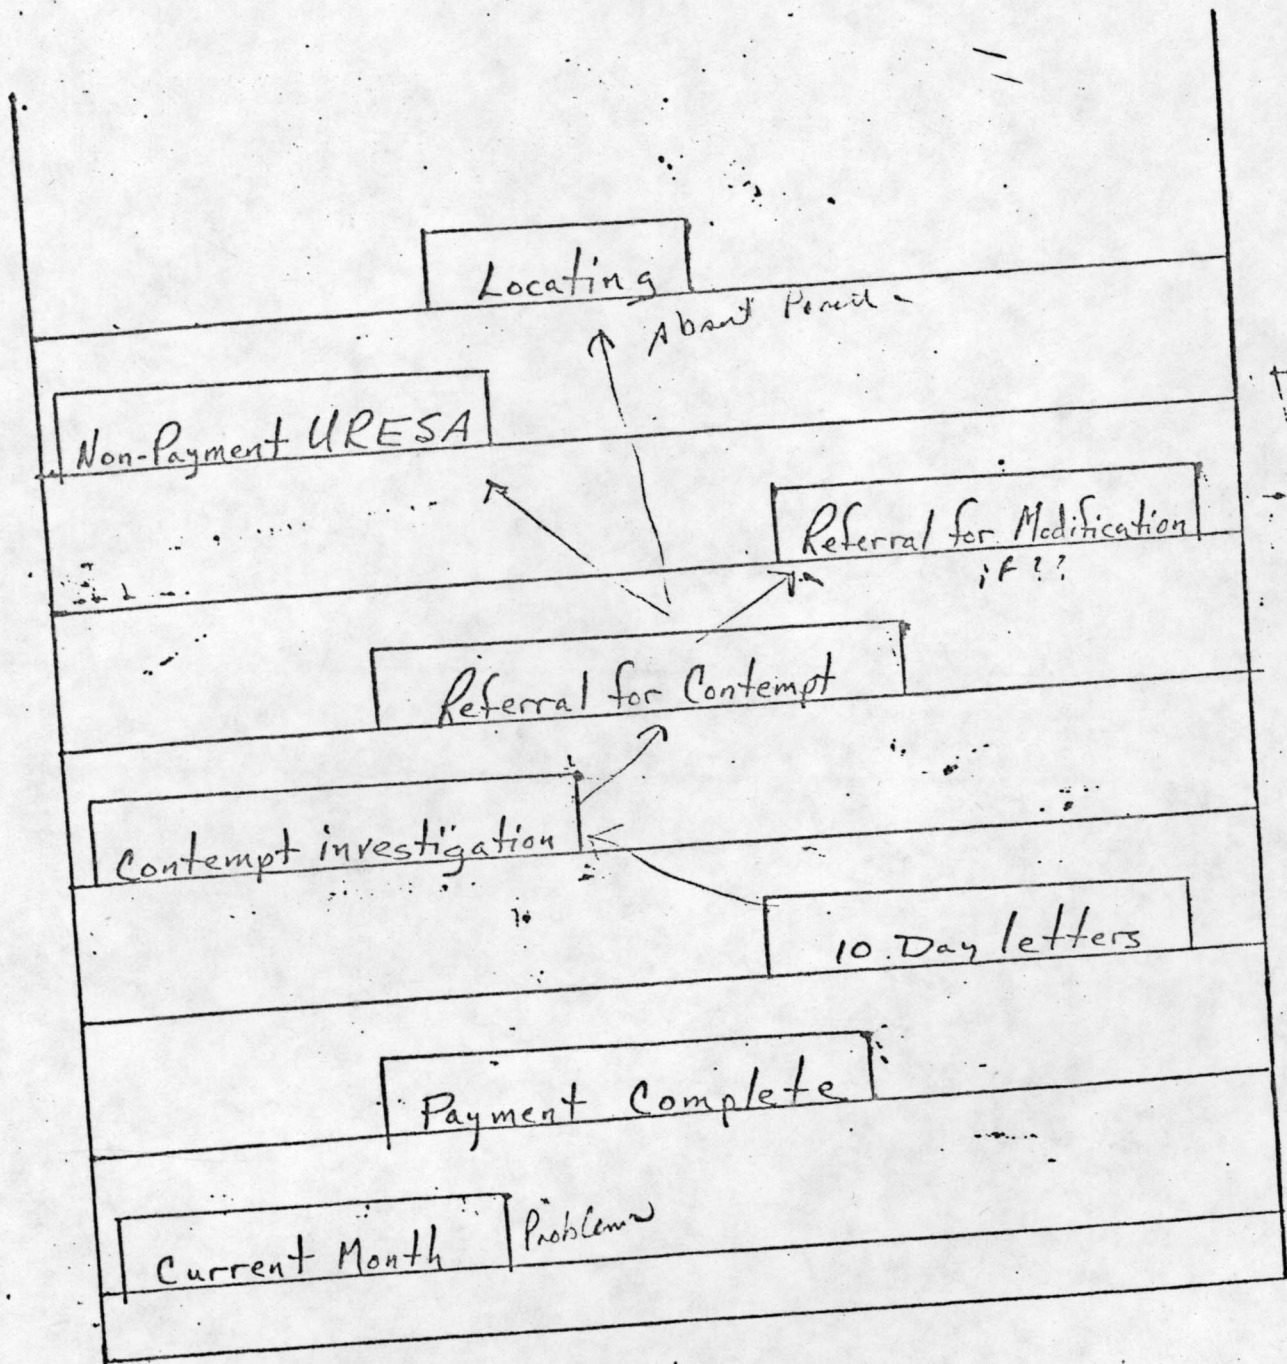 Locating
Absent Parent
Non-Payment URESA
Referral for Modification
if ??
Referral for Contempt
Contempt investigation
10. Day letters
Payment Complete
Current Month
Problems